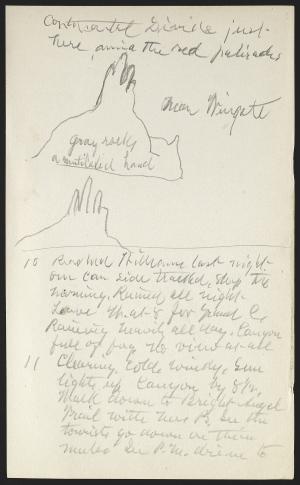 Continental Divide just
here, amid the red palisades
near Wingate
gray rocks
a mutilated hand
10 Reached Williams last night
our car side tracked, stop till
morning. Rained all night.
Leave that 8 for Grand C.
Raining heavily all day. Canyon
full of fog no view at all
11 Clearing, cold windy. Sun
lights up Canyon by
Walk down to Bright Angel
Trail with Mrs P. See the
tourists go down on their
mules. In P.M. drive to